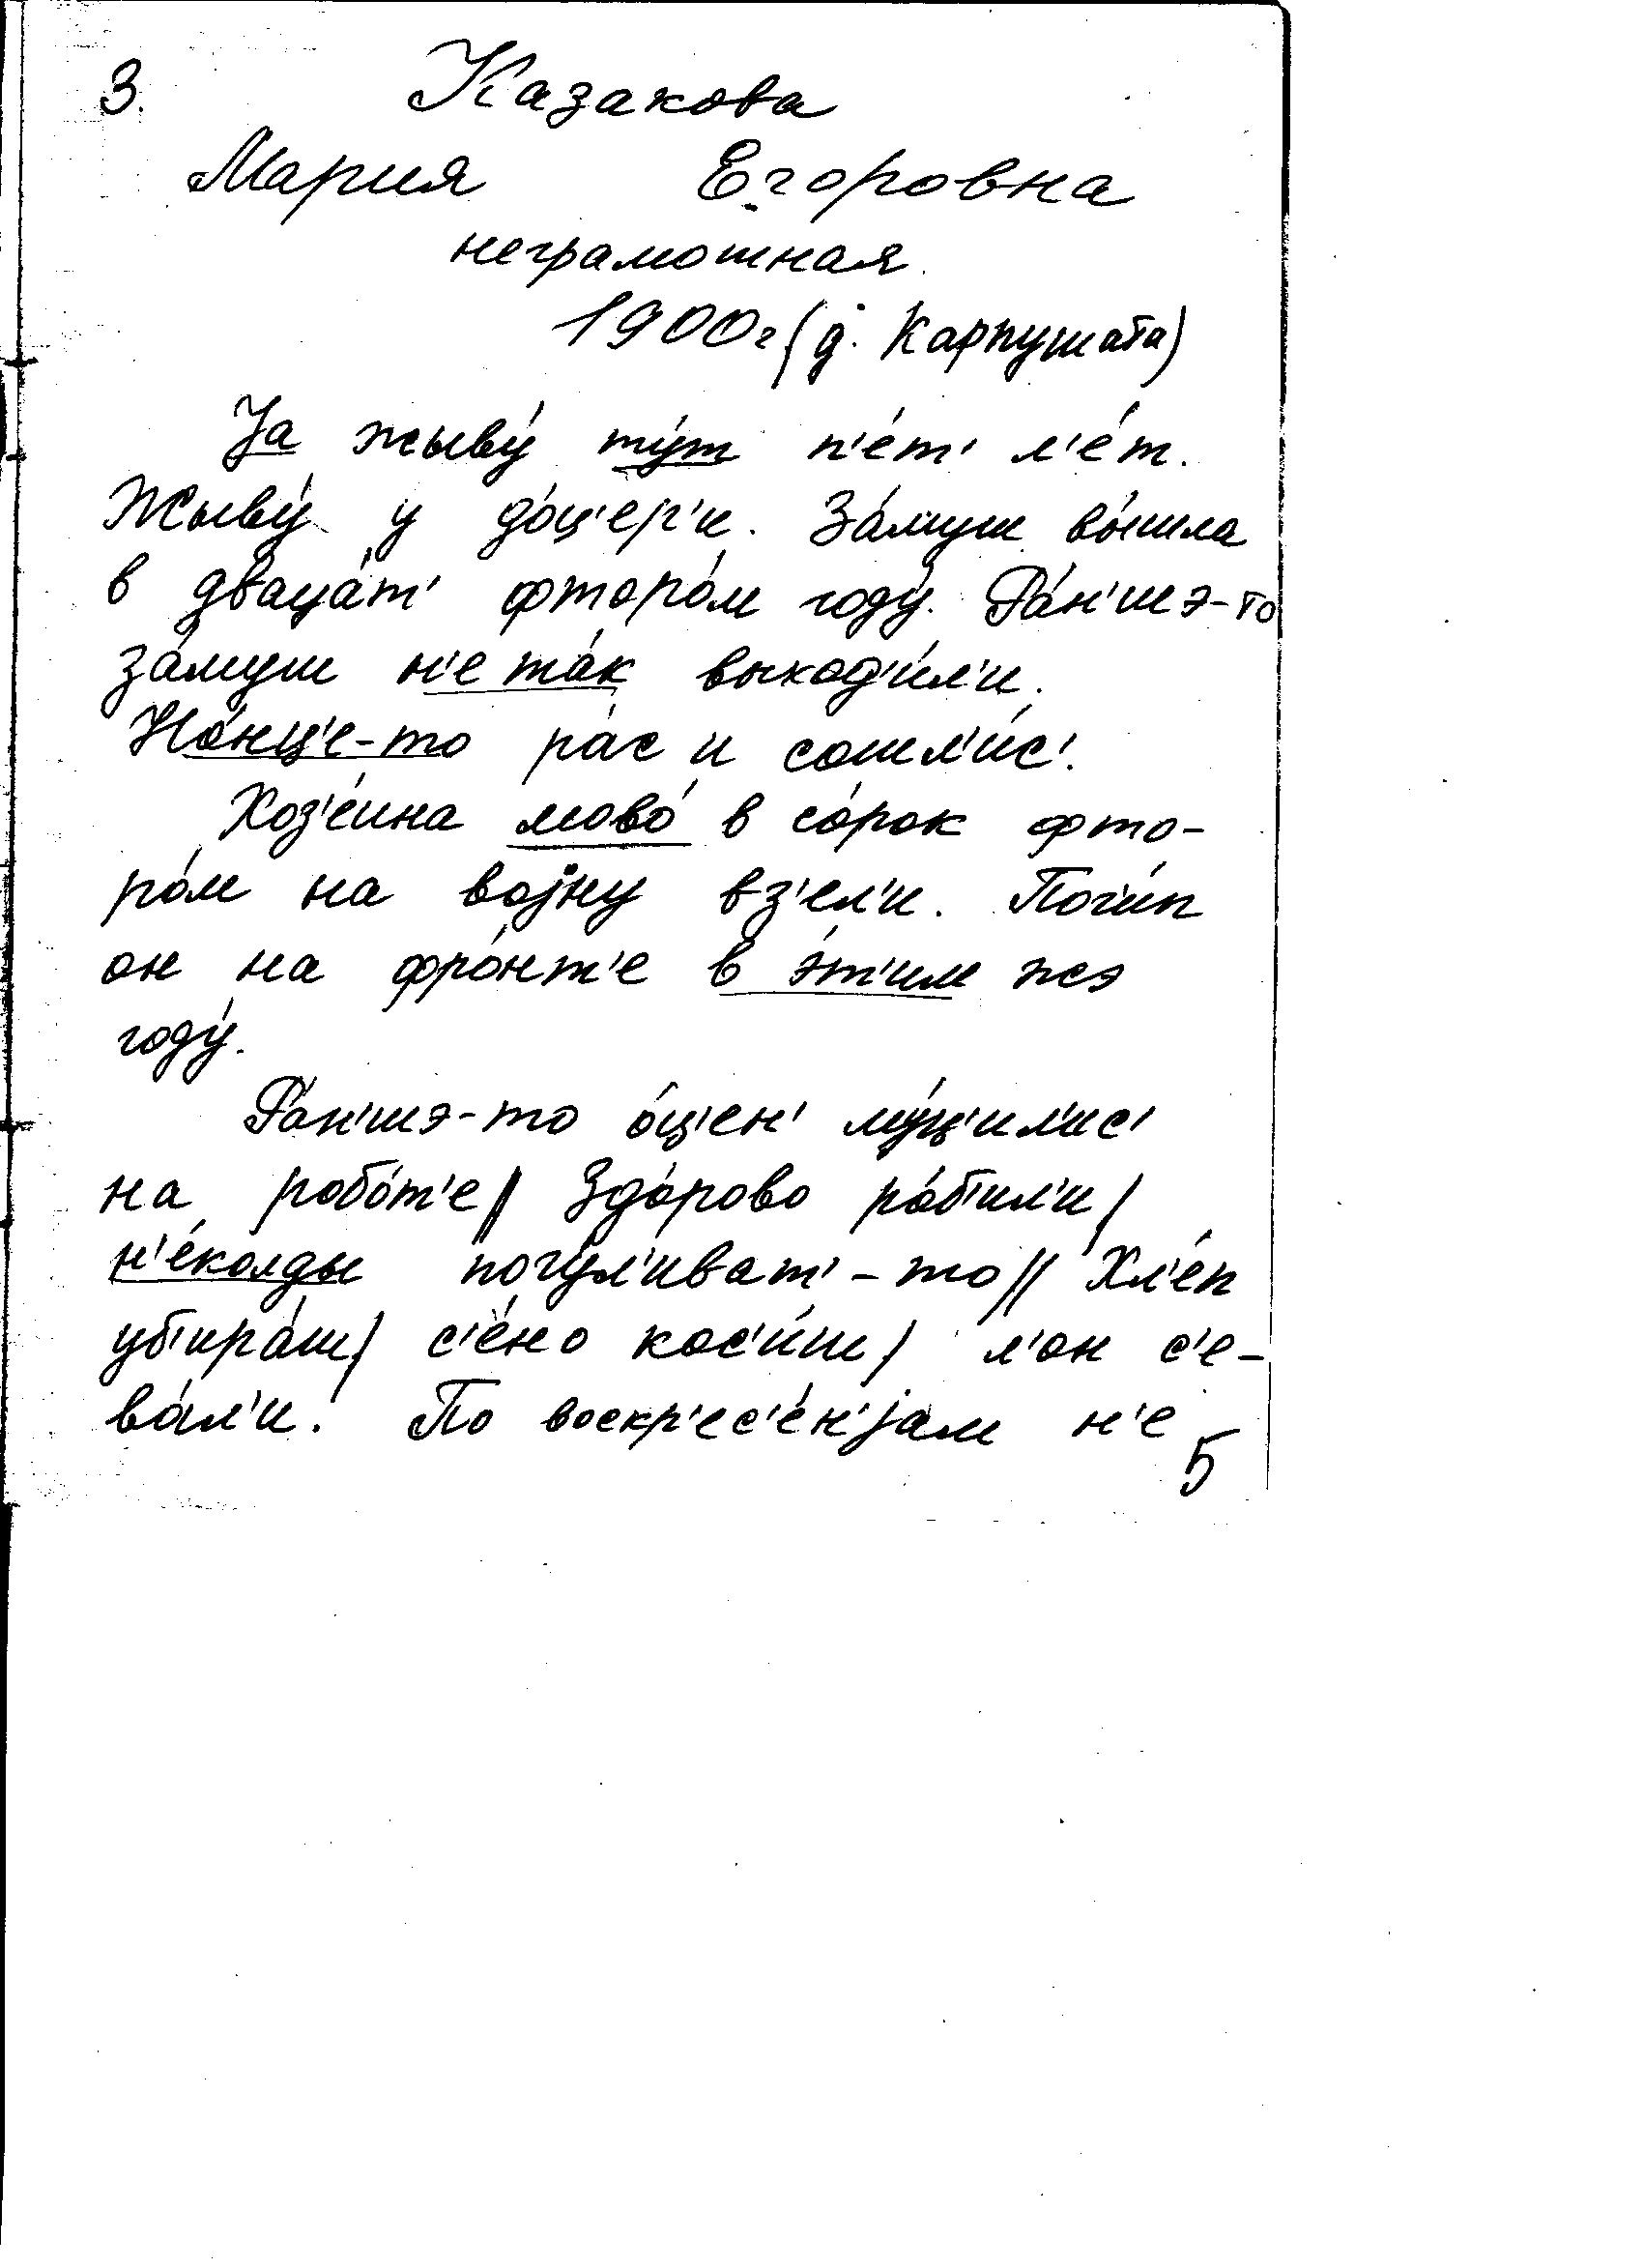 3. Казакова
Мария Егоровна
неграмотная
1900г (д. Карпушата)
Jа жыву́ ту́т п'е́т' л'е́т.
Жыву́ у до́ц'ер'и. За́муш вы́шла
в дваца́т' фторо́м году́. Ра́н'шэ-то
за́муш н'е та́к выход'и́л'и.
Но́нц'е-то ра́с и сошл'и́с'.
Хоз'е́ина мово́ в со́рок фто-
ро́м на воjну вз'ел'и. Пог'и́п
он на фро́нт'е в э́т'им жэ
году́.
Ра́н'шэ-то о́ц'ен' му́ц'ил'ис'
на робо́т'е || Здо́рово ро́б'ил'и |
н'е́колды погу́л'иват'-то || Хл'е́п
уб'ира́ш | с'е́но кос'и́ш | л'он с'е-
ва́л'и. По воскр'ес'е́н'jам н'е
5